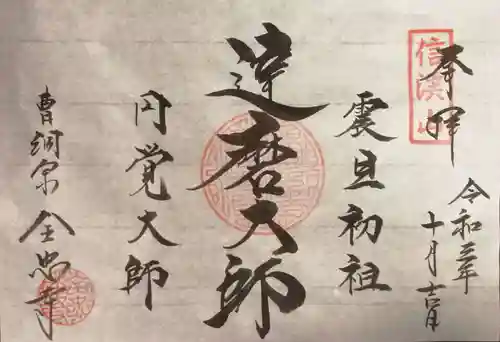 奉拝
信溪山
令和三年
十月吉日
震旦初祖
達磨大師
円覚大師
曹洞宗 全忠寺